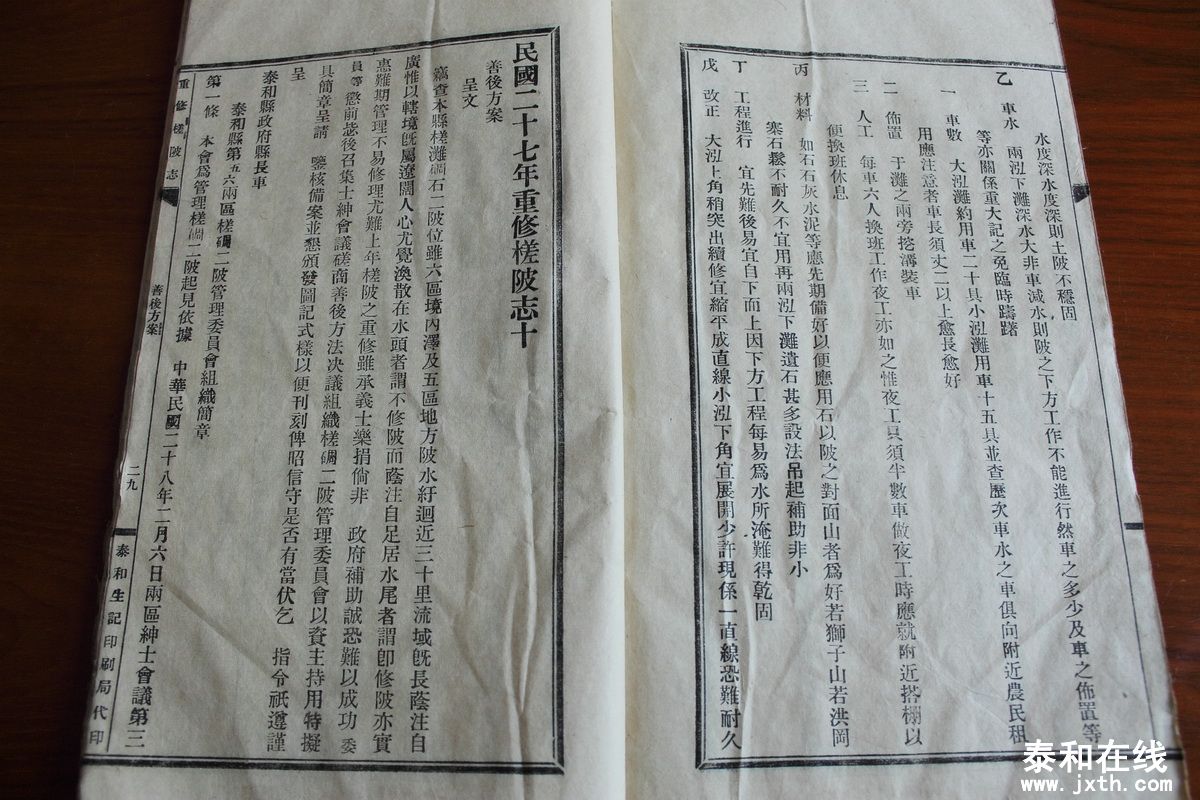 水度深水度深則土陂不穩固
乙　車水　兩泓下灘深水大非車減水則陂之下方工作不能進行然車之多少及車之佈置等
等亦關係重大記之免臨時躊躇
一　車數　大泓灘約用車二十具小泓灘用車十五具並查歷次車水之車俱向附近農民租
用應注意者車長須丈二以上愈長愈好
二　佈置　于灘之兩旁挖溝裝車
三　人工　每車六人換班工作夜工亦如之惟夜工只須半數車做夜工時應就附近搭棚以
便換班休息
丙　材料　如石石灰水泥等應先期備好以便應用石以陂之對面山者爲好若獅子山若洪岡
寨石鬆不耐久不宜用再兩泓下灘遺石甚多設法吊起補助非小
丁　工程進行　宜先難後易宜自下而上因下方工程每易爲水所淹難得乾固
戊　改正　大泓上角稍突出續修宜縮平成直線小泓下角宜展開少許現係一直線恐難耐久
民國二十七年重修槎陂志十
善後方案
呈文
竊查本縣槎灘碉石二陂位雖六區境內澤及五區地方陂水紆迴近三十里流域旣長蔭注自
廣惟以轄境旣屬遼闊人心尤覺渙散在水頭者謂不修陂而蔭注自足居水尾者謂卽修陂亦實
惠難期管理不易修理尤難上年槎陂之重修雖承義士樂捐倘非　政府補助誠恐難以成功委
員等懲前毖後召集士紳會議磋商善後方法決議組織槎碉二陂管理委員會以資主持用特擬
具簡章呈請　鑒核備案並懇頒發圖記式樣以便刊刻俾昭信守是否有當伏乞　指令祇遵謹
呈
泰和縣政府縣長車
泰和縣第五六兩區槎碉二陂管理委員會組織簡章
第一條　本會爲管理槎碉二陂起見依據　中華民國二十八年二月六日兩區紳士會議第三
重修槎陂志
善後方案
二九
泰和生記印刷局代印
泰和在线
www.jxth.com